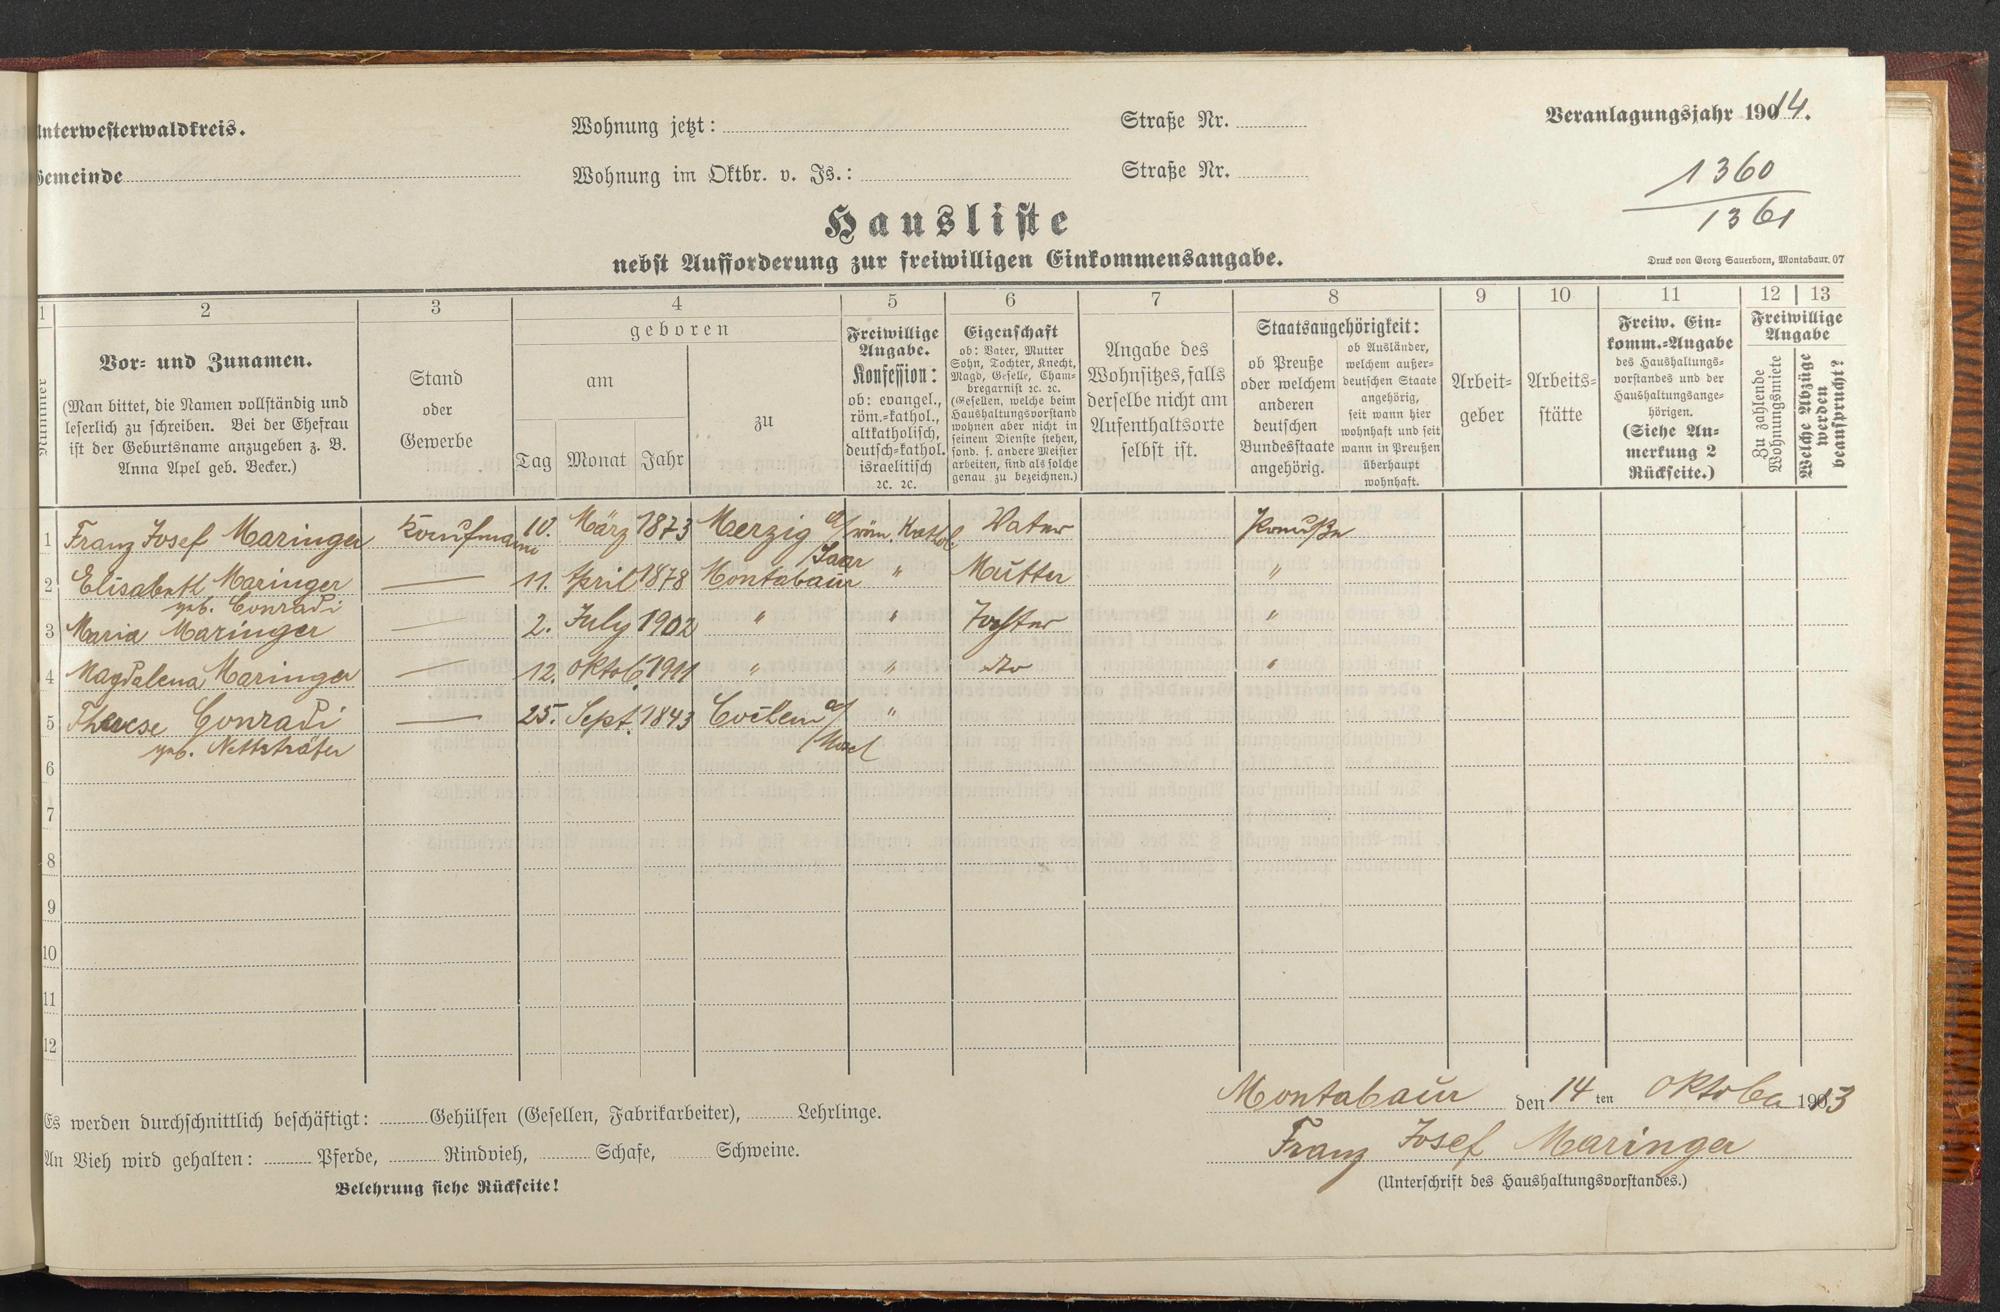 Unterwesterwaldkreis.
Gemeinde
Wohnung jetzt:
Straße Nr.
Wohnung im Oktbr. v. Js.:
Straße Nr.
Veranlagungsjahr 1914.
1360
1361
Hausliste
nebst Aufforderung zur freiwilligen Einkommensangabe.
Druck von Georg Sauerborn, Montabaur. 07
1 2 3 4 5 6 7 8 9 10 11 12 13
Nummer
Vor- und Zunamen.
(Man bittet, die Namen vollständig und
leserlich zu schreiben. Bei der Ehefrau
ist der Geburtsname anzugeben z. B.
Anna Apel geb. Becker.)
Stand
oder
Gewerbe
geboren
am
Tag Monat Jahr
zu
Freiwillige
Angabe.
Konfession:
ob: evangel.,
röm.-kathol.,
altkatholisch,
deutsch-kathol.
israelitisch
2c. 2c.
Eigenschaft
ob: Vater, Mutter
Sohn, Tochter, Knecht,
Magd, Geselle, Cham-
bregarnist 2c. 2c.
(Gesellen, welche beim
Haushaltungsvorstand
wohnen aber nicht in
seinem Dienste stehen,
sond. f. andere Meister
arbeiten, sind als solche
genau zu bezeichnen.)
Angabe des
Wohnsitzes, falls
derselbe nicht am
Aufenthaltsorte
selbst ist.
Staatsangehörigkeit:
ob Preuße
oder welchem
anderen
deutschen
Bundesstaate
angehörig.
ob Ausländer,
welchem außer-
deutschen Staate
angehörig,
seit wann hier
wohnhaft und seit
wann in Preußen
überhaupt
wohnhaft.
Arbeit-
geber
Arbeits-
stätte
Freiw. Ein-
komm.-Angabe
des Haushaltungs-
vorstandes und der
Haushaltungsange-
hörigen.
(Siehe An-
merkung 2
Rückseite.)
Freiwillige
Angabe
Zu zahlende
Wohnungsmiete
Welche Abzüge
werden
beansprucht?
1 Franz Josef Maringer Kaufmann 10. März 1873 Merzig a/Saar röm. Kathol. Vater Preuße
2 Elisabeth Maringer — 11. April 1878 Montabaur " Mutter "
geb. Conradi
3 Maria Maringer — 2. July 1902 " " Tochter "
4 Magdalena Maringer — 12. Oktob. 1911 " " do "
5 Therese Conradi — 25. Sept. 1843 Cochem a/Mosel "
geb.
6
7
8
9
10
11
12
Es werden durchschnittlich beschäftigt: Gehülfen (Gesellen, Fabrikarbeiter), Lehrlinge.
An Vieh wird gehalten: Pferde, Rindvieh, Schafe, Schweine.
Belehrung siehe Rückseite!
Montabaur den 14 ten Oktober 1913
Franz Josef Maringer
(Unterschrift des Haushaltungsvorstandes.)